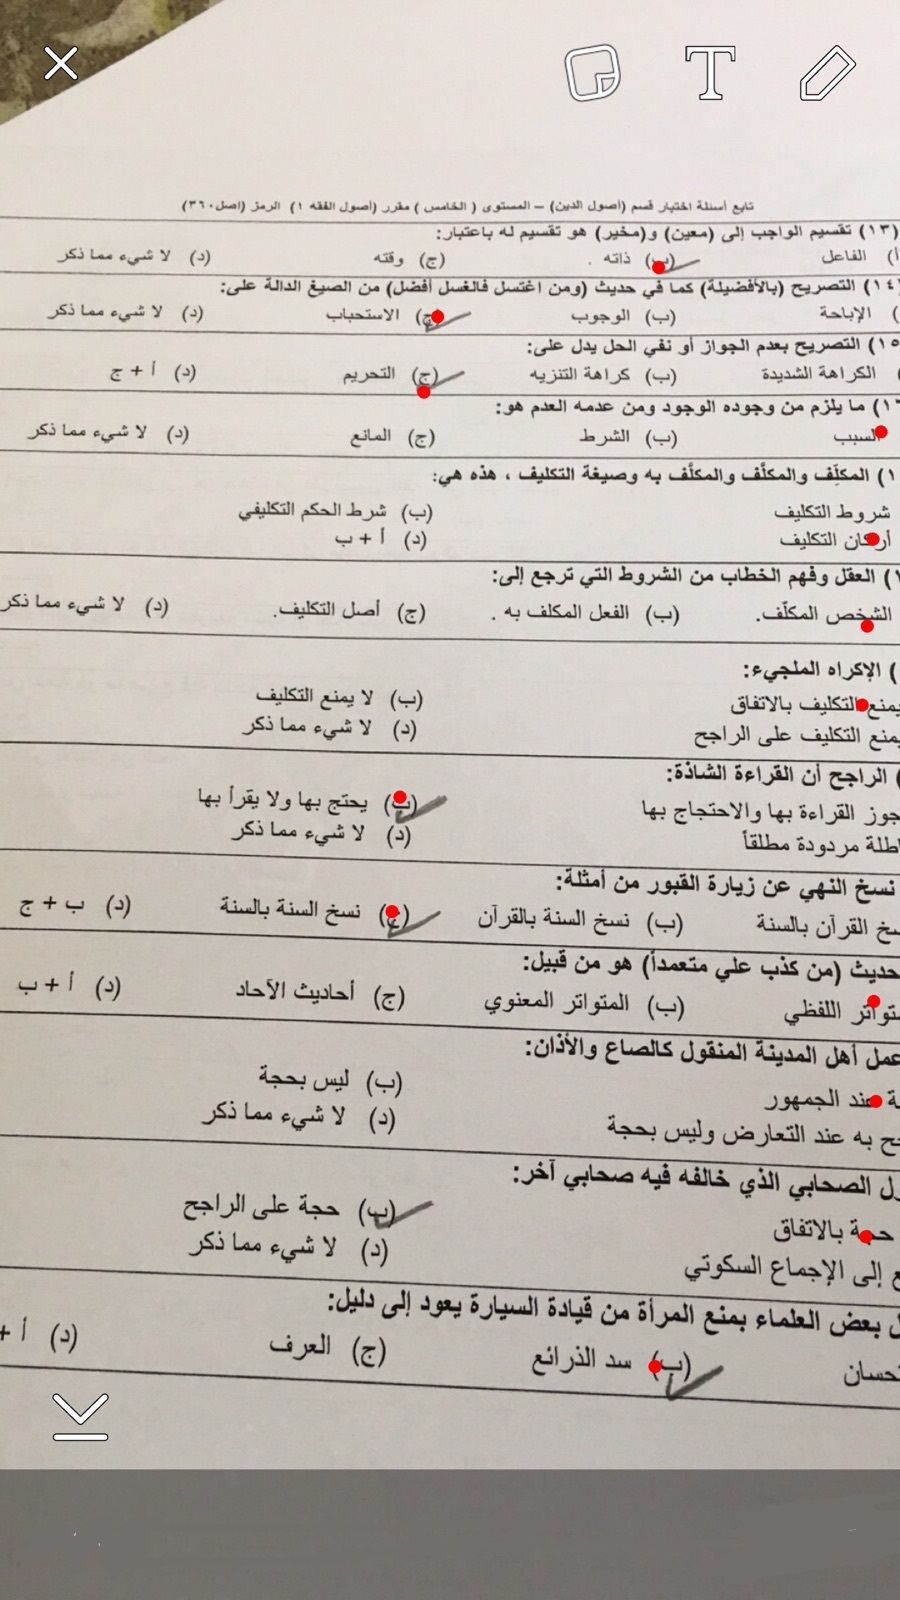 تابع أسئلة اختبار قسم (أصول الدين) – المستوى ( الخامس ) مقرر (أصول الفقه ١) الرمز (اصل٣٦٠)
١٣) تقسيم الواجب إلى (معين) و(مخير) هو تقسيم له باعتبار:
أ) الفاعل (ب) ذاته . (ج) وقته (د) لا شيء مما ذكر
١٤) التصريح (بالأفضيلة) كما في حديث (ومن اغتسل فالغسل أفضل) من الصيغ الدالة على:
) الإباحة (ب) الوجوب (ج) الاستحباب (د) لا شيء مما ذكر
١٥) التصريح بعدم الجواز أو نفي الحل يدل على:
الكراهة الشديدة (ب) كراهة التنزيه (ج) التحريم (د) أ + ج
) ما يلزم من وجوده الوجود ومن عدمه العدم هو:
السبب (ب) الشرط (ج) المانع (د) لا شيء مما ذكر
) المكلِّف والمكلَّف والمكلَّف به وصيغة التكليف ، هذه هي:
شروط التكليف (ب) شرط الحكم التكليفي
أركان التكليف (د) أ + ب
) العقل وفهم الخطاب من الشروط التي ترجع إلى:
الشخص المكلّف. (ب) الفعل المكلف به . (ج) أصل التكليف. (د) لا شيء مما ذكر
) الإكراه الملجيء:
يمنع التكليف بالاتفاق (ب) لا يمنع التكليف
يمنع التكليف على الراجح (د) لا شيء مما ذكر
) الراجح أن القراءة الشاذة:
جوز القراءة بها والاحتجاج بها (ب) يحتج بها ولا يقرأ بها
اطلة مردودة مطلقاً (د) لا شيء مما ذكر
نسخ النهي عن زيارة القبور من أمثلة:
سخ القرآن بالسنة (ب) نسخ السنة بالقرآن (ج) نسخ السنة بالسنة (د) ب + ج
حديث (من كذب علي متعمداً) هو من قبيل:
متواتر اللفظي (ب) المتواتر المعنوي (ج) أحاديث الآحاد (د) أ + ب
عمل أهل المدينة المنقول كالصاع والأذان:
ة عند الجمهور (ب) ليس بحجة
جح به عند التعارض وليس بحجة (د) لا شيء مما ذكر
ول الصحابي الذي خالفه فيه صحابي آخر:
حجة بالاتفاق (ب) حجة على الراجح
ع إلى الإجماع السكوتي (د) لا شيء مما ذكر
ل بعض العلماء بمنع المرأة من قيادة السيارة يعود إلى دليل:
تحسان (ب) سد الذرائع (ج) العرف (د) أ +